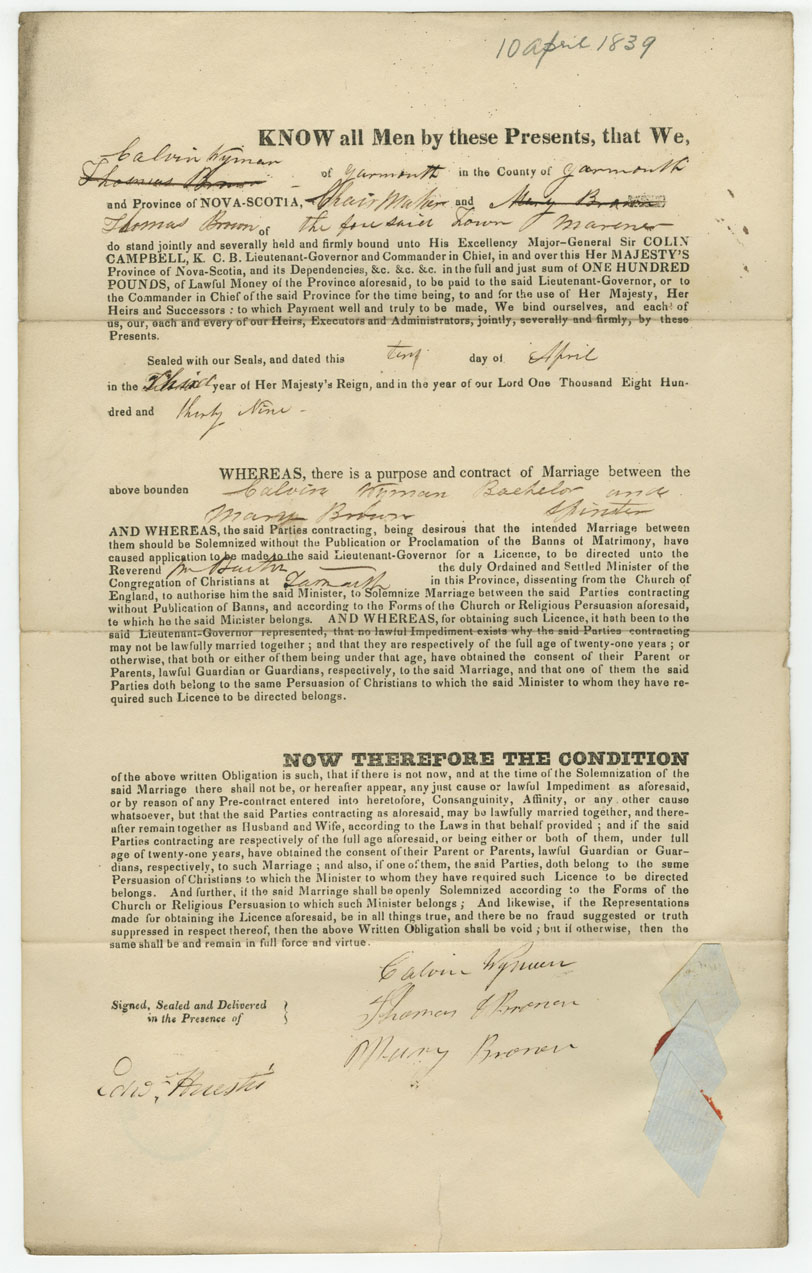 10 april 1839
KNOW all Men by these Presents, that We,
Calvin Wyman
Thomas Brown of Yarmouth in the County of Yarmouth
and Province of NOVA-SCOTIA, Chair Maker and Mary Brown
Thomas Brown of the fore said Town Mariner
do stand jointly and severally held and firmly bound unto His Excellency Major-General Sir COLIN
CAMPBELL, K. C. B. Lieutenant-Governor and Commander in Chief, in and over this Her MAJESTY'S
Province of Nova-Scotia, and its Dependencies, &c. &c. &c. in the full and just sum of ONE HUNDRED
POUNDS, of Lawful Money of the Province aforesaid, to be paid to the said Lieutenant-Governor, or to
the Commander in Chief of the said Province for the time being, to and for the use of Her Majesty, Her
Heirs and Successors : to which Payment well and truly to be made, We bind ourselves, and each of
us, our, each and every of our Heirs, Executors and Administrators, jointly, severally and firmly, by these
Presents.
Sealed with our Seals, and dated this day of April
in the Third year of Her Majesty's Reign, and in the year of our Lord One Thousand Eight Hun-
dred and thirty Nine -
WHEREAS, there is a purpose and contract of Marriage between the
above bounden Calvin Wyman Bachelor and
Mary Brown Spinster
AND WHEREAS, the said Parties contracting, being desirous that the intended Marriage between
them should be Solemnized without the Publication or Proclamation of the Banns of Matrimony, have
caused application to be made to the said Lieutenant-Governor for a Licence, to be directed unto the
Reverend the duly Ordained and Settled Minister of the
Congregation of Christians at in this Province, dissenting from the Church of
England, to authorise him the said Minister, to Solemnize Marriage between the said Parties contracting
without Publication of Banns, and according to the Forms of the Church or Religious Persuasion aforesaid,
to which he the said Minister belongs. AND WHEREAS, for obtaining such Licence, it hath been to the
said Lieutenant-Governor represented, that no lawful Impediment exists why the said Parties contracting
may not be lawfully married together ; and that they are respectively of the full age of twenty-one years ; or
otherwise, that both or either of them being under that age, have obtained the consent of their Parent or
Parents, lawful Guardian or Guardians, respectively, to the said Marriage, and that one of them the said
Parties doth belong to the same Persuasion of Christians to which the said Minister to whom they have re-
quired such Licence to be directed belongs.
NOW THEREFORE THE CONDITION
of the above written Obligation is such, that if there is not now, and at the time of the Solemnization of the
said Marriage there shall not be, or hereafter appear, any just cause or lawful Impediment as aforesaid,
or by reason of any Pre-contract entered into heretofore, Consanguinity, Affinity, or any other cause
whatsoever, but that the said Parties contracting as aforesaid, may be lawfully married together, and there-
after remain together as Husband and Wife, according to the Laws in that behalf provided ; and if the said
Parties contracting are respectively of the full age aforesaid, or being either or both of them, under full
age of twenty-one years, have obtained the consent of their Parent or Parents, lawful Guardian or Guar-
dians, respectively, to such Marriage ; and also, if one of them, the said Parties, doth belong to the same
Persuasion of Christians to which the Minister to whom they have required such Licence to be directed
belongs. And further, if the said Marriage shall be openly Solemnized according to the Forms of the
Church or Religious Persuasion to which such Minister belongs ; And likewise, if the Representations
made for obtaining the Licence aforesaid, be in all things true, and there be no fraud suggested or truth
suppressed in respect thereof, then the above Written Obligation shall be void ; but if otherwise, then the
same shall be and remain in full force and virtue.
Calvin Wyman
Signed, Sealed and Delivered
in the Presence of
Thomas Brown
Mary Brown